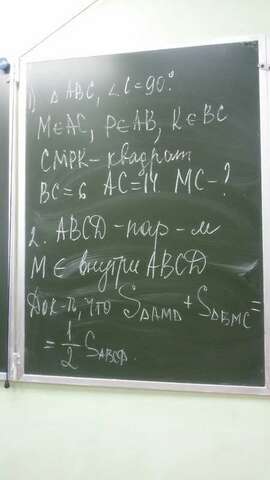 1) △ABC, ∠C=90°.
M∈AC, P∈AB, K∈BC
CMPK - квадрат
BC=6 AC=14 MC-?
2. ABCD - пар-м
M ∈ внутри ABCD
Док-ть, что S△AMD + S△BMC =
= 1/2 SABCD.